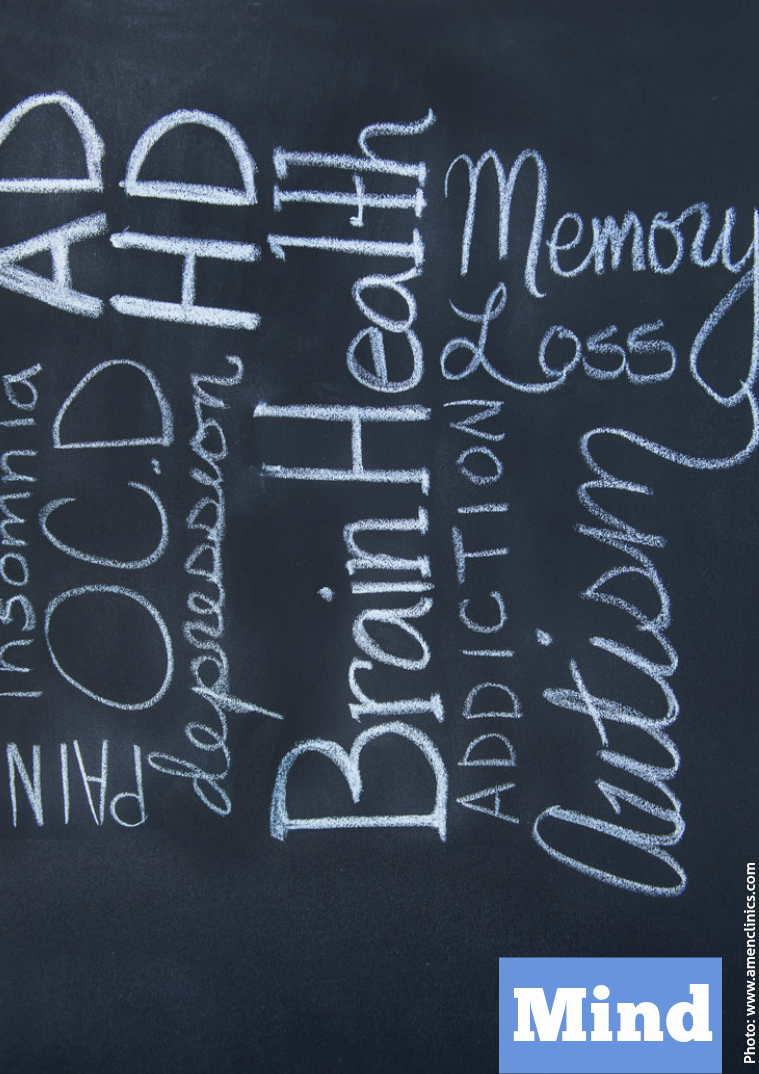 Insomnia
AD
HD
PAIN
OC.D
depression
Brain Health
ADDICTION
Memory
Loss
Autism
Mind
Photo: www.amenclinics.com